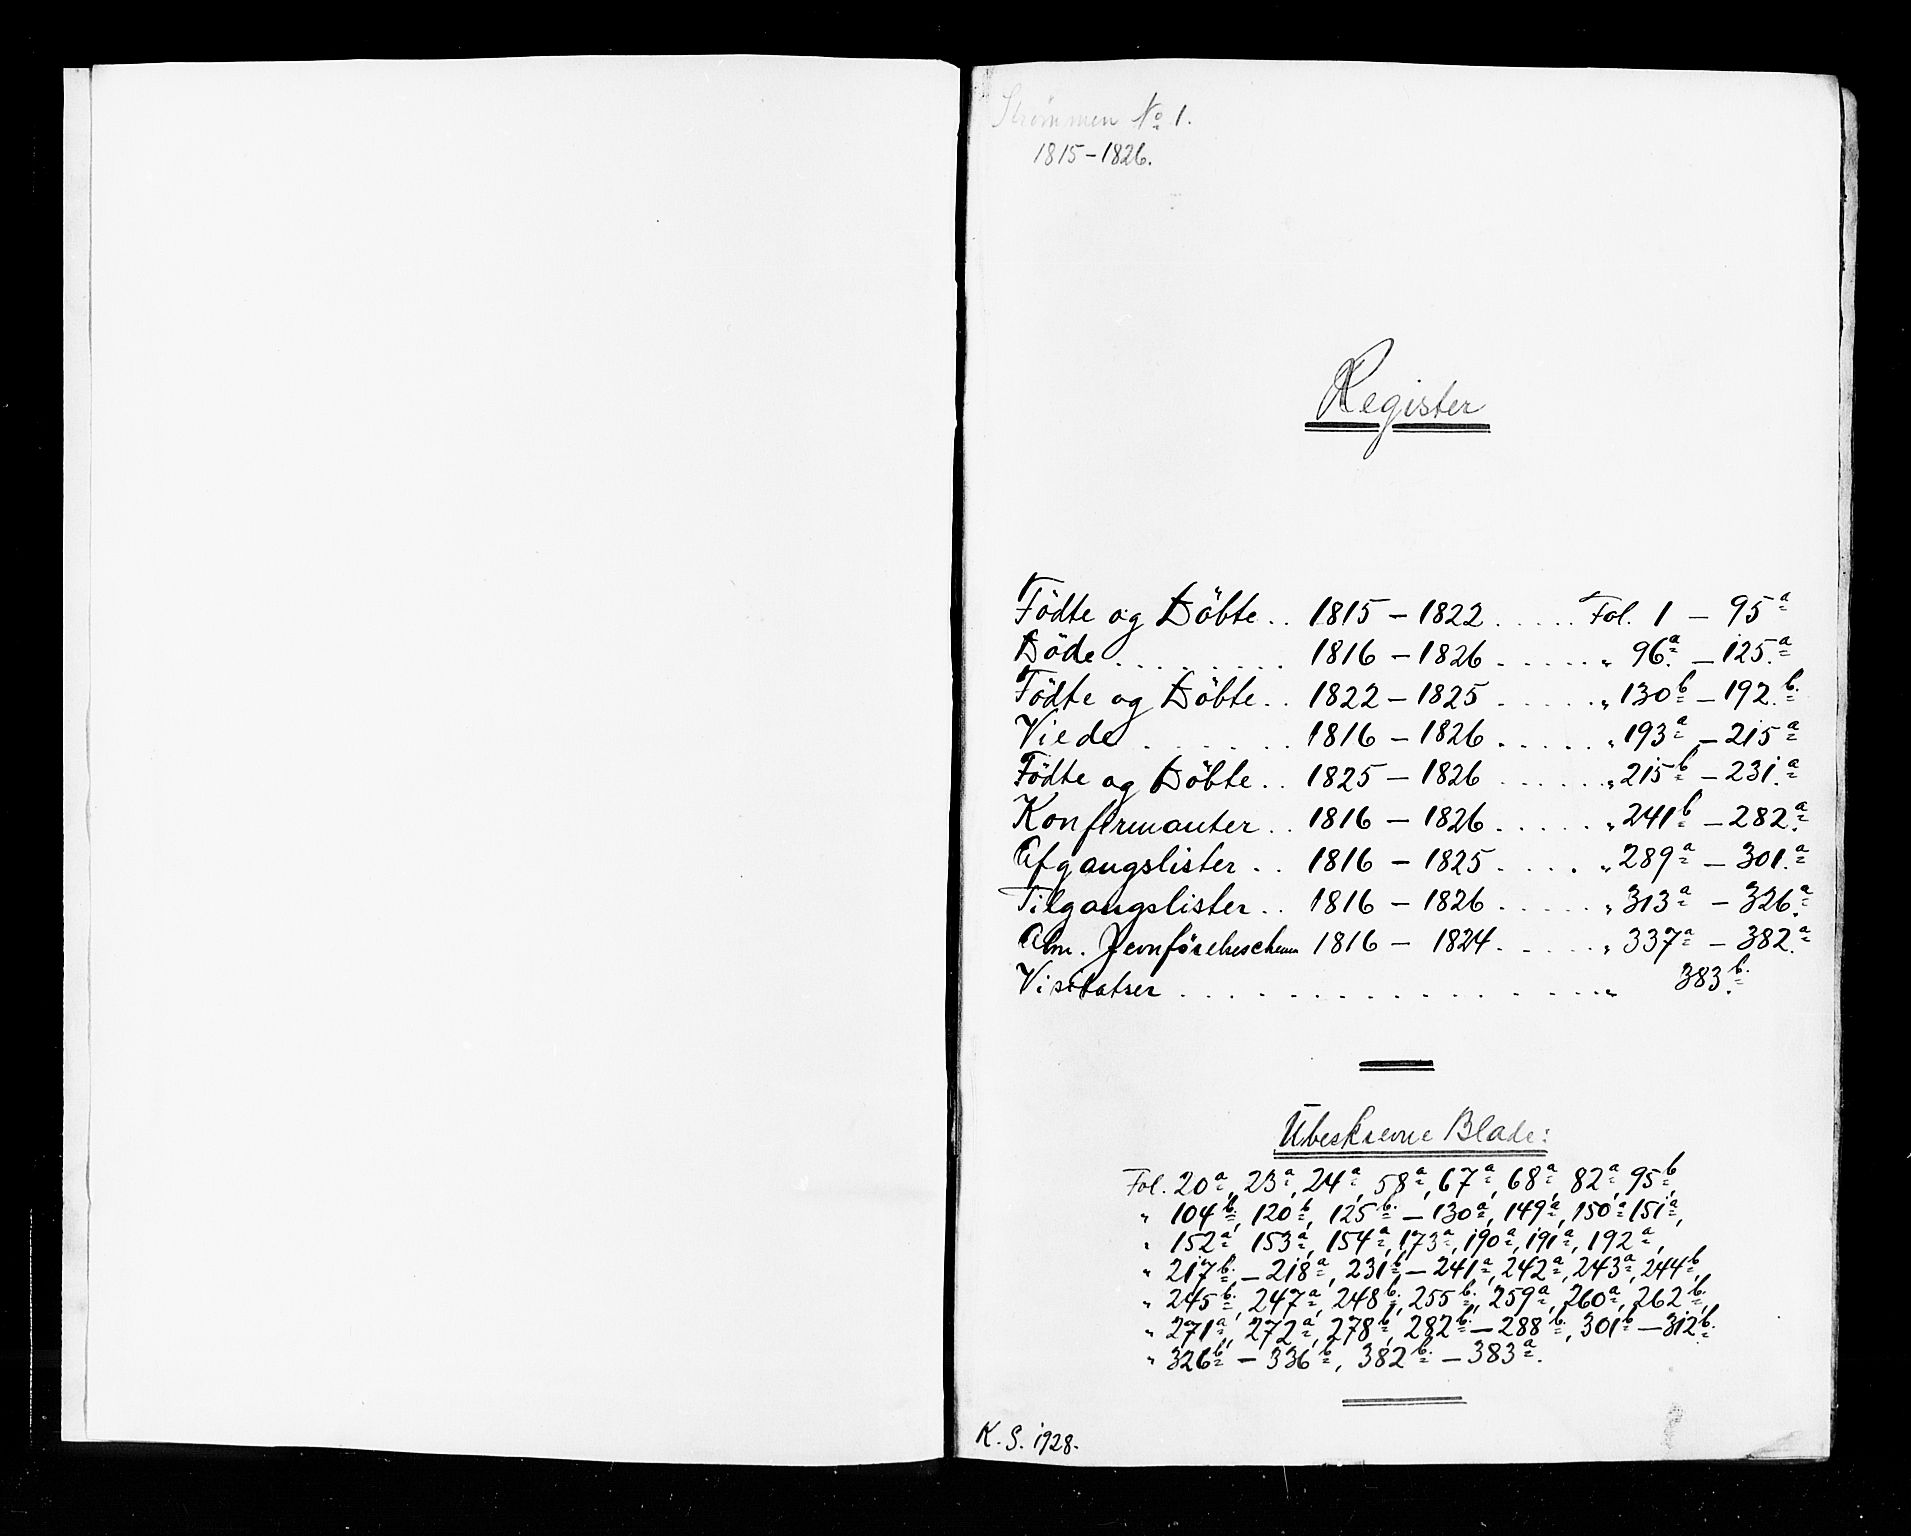 Strömmen No 1.
1815-1826.
Register
Födte og Döbte .. 1815 - 1822 ..... Fol. 1 - 95a
Döde ........ 1816 - 1826 ..... " 96a. - 125.a
Födte og Döbte .. 1822 - 1825 ..... " 130b - 192.b.
Viede ....... 1816 - 1826 ..... " 193a - 215a
Födte og Döbte .. 1825 - 1826 ..... " 215b - 231.a
Konfirmanter .. 1816 - 1826 ..... " 241b - 282.a
Afgangslister .. 1816 - 1825 .... " 289a - 301.a
Tilgangslister .. 1816 - 1826 ..... " 313a - 326.a
Alm. Jevnförelseschema 1816 - 1824 ..... " 337a - 382.a
Visitatser ................. " 383.b.
Ubeskrevne Blade:
Fol. 20a, 23a, 24a, 58a, 67a, 68a, 82a, 95b,
" 104b., 120b, 125b. - 130a, 149a, 150a, 151a,
" 152a, 153a, 154a, 173a, 190a, 191a, 192a,
" 217b. - 218a, 231b - 241a, 242a, 243a, 244b,
" 245b., 247a, 248b, 255b., 259a, 260a, 262b.,
" 271a, 272a, 278b, 282b. - 288b., 301b - 312b.
" 326b - 336b, 382b. - 383a.
K. S. 1928.